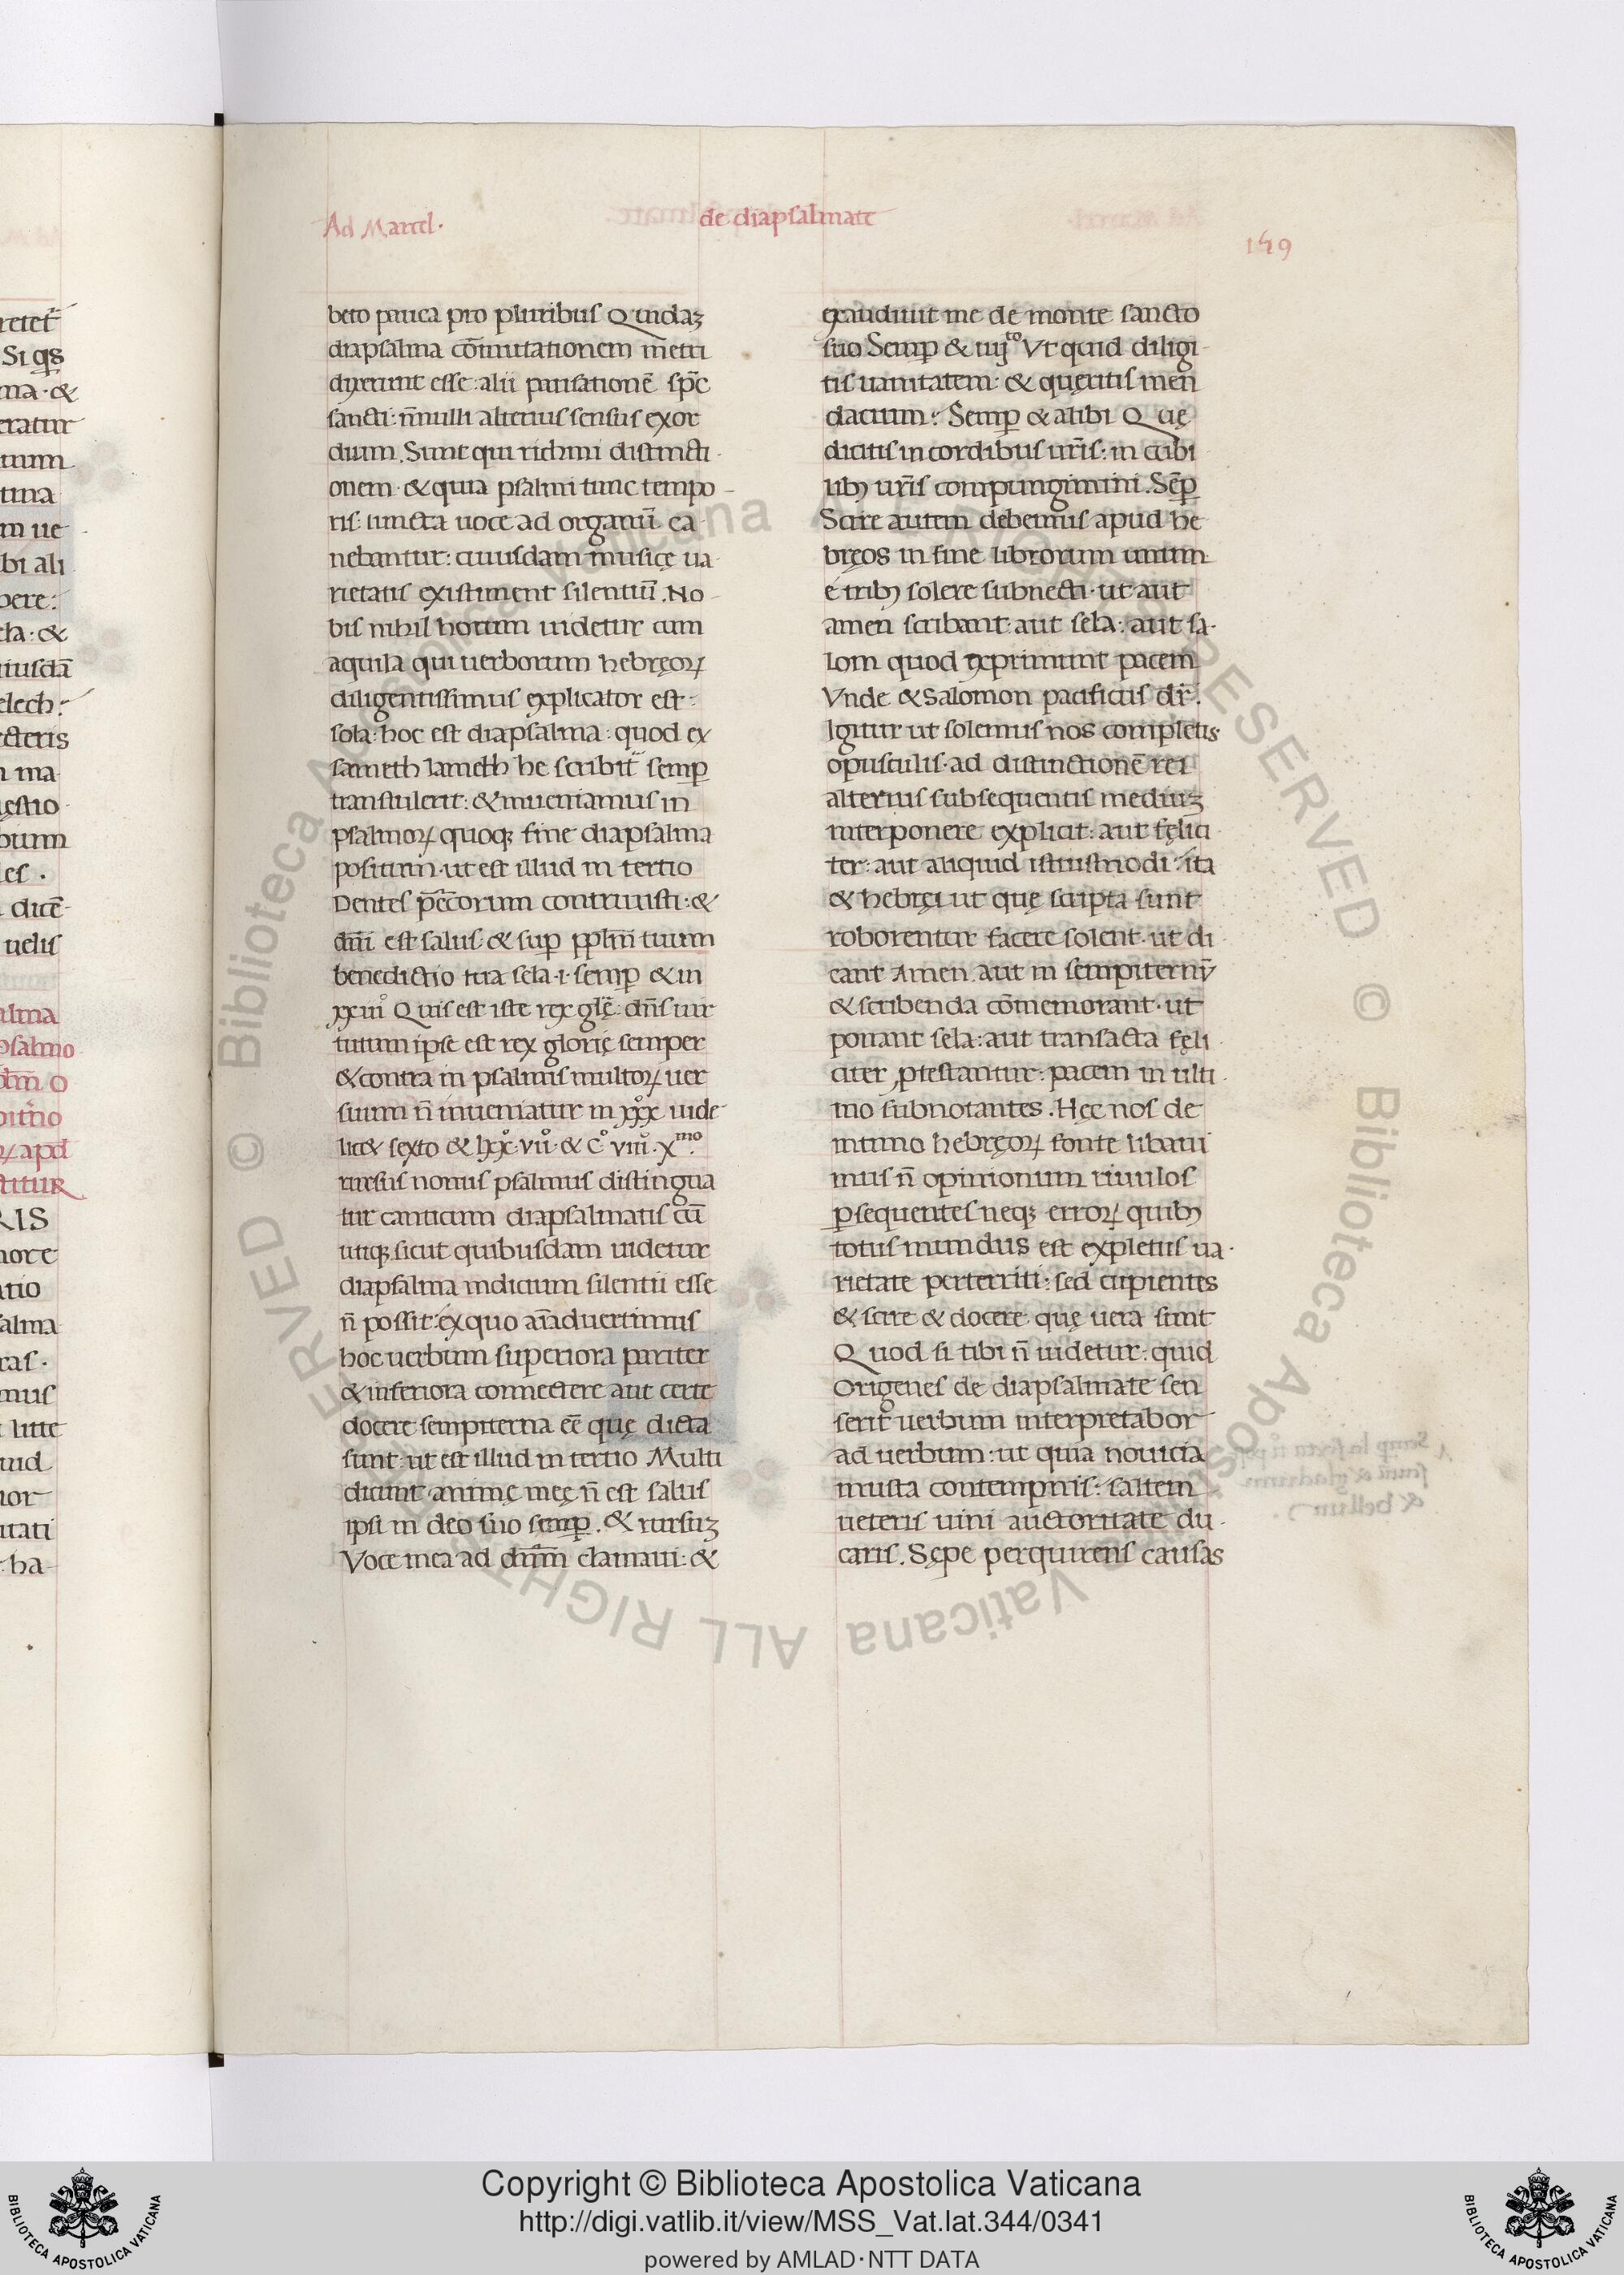 Ad Marcel.
de diapsalmate
149
beto pauca pro pluribus Quidaʒ
diapsalma cōmutationem metri
dixerunt esse: alii pausationē spc̄
sancti: n̄nulli alterius sensus exor
dium. Sunt qui richmi distincti-
onem· & quia psalmi tunc tempo-
ris: iuncta uoce ad organū ca-
nebantur: cuiusdam musicę ua-
rietatis existiment silentiū. No-
bis nihil horum uidetur cum
aquila qui uerborum hebręoꝝ
diligentissimus explicator est:
sola: hoc est diapsalma: quod ex
sameth lameth he scribit̄ semꝑ
transtulerit: & inueniamus in
psalmoꝝ quoqꝫ fine diapsalma
positum· ut est illud in tertio
Dentes pc̄corum contriuisti: &
dn̄i est salus· & suꝑ ppl̄m tuum
benedictio tua sela·i· semꝑ & in
xxiiiº Quis est iste rex glę̄: dn̄s uir
tutum ipse est rex glorię semper
& contra in psalmis multoꝝ uer
suum n̄ inueniatur in xxxº uide-
lic& sexto & lxxº·viiº· & cº viiiº·Xmo.
rursus nonus psalmus distingua
tur canticum diapsalmatis cū
utiqꝫ sicut quibusdam uidetur
diapsalma indicium silentii esse
n̄ possit: ex quo aīaduertimus
hoc uerbum superiora pariter
& inferiora connectere aut certe
docere sempiterna eē quę dicta
sunt: ut est illud in tertio Multi
dicunt· animę meę n̄ est salus
ipsi in deo suo semꝑ. & rursuʒ
Voce mea ad dn̄m clamaui: &
exaudiuit me de monte sancto
suo Semꝑ & iiijto Vt quid diligi-
tis uanitatem: & queritis men
dacium: Semꝑ & alibi Quę
dicitis in cordibus ur̄is: in cubi
libꝫ ur̄is compungimini. Sēꝑ
Scire autem debemus apud he
bręos in fine librorum unum
e tribꝫ solere subnecti· ut aut
amen scribant: aut sela: aut sa-
lom quod exprimunt pacem
Vnde & Salomon pacificus dr̄.
Igitur ut solemus nos completis
opusculis· ad distinctionē rei
alterius subsequentis mediuʒ
interponere explicit: aut fęlici
ter: aut aliquid istiusmodi· ita
& hebręi ut quę scripta sunt
roborentur facere solent· ut di-
cant Amen. aut in sempiternū
& scribenda cōmemorant· ut
ponant sela: aut transacta fęli-
citer ꝓtestantur: pacem in ulti-
mo subnotantes. Hęc nos de
intimo hebręoꝝ fonte libaui
mus n̄ opinionum riuulos
ꝑsequentes neqꝫ erroꝝ quibꝫ
totus mundus est expletus ua-
rietate perterriti: sed cupientes
& scire & docere quę uera sunt
Quod si tibi n̄ uidetur: quid
Origenes de diapsalmate sen
serit uerbum interpretabor
ad uerbum: ut quia nouicia
musta contempnis: saltem
ueteris uini auctoritate du-
caris. Sępe perquirens causas
Copyright © Biblioteca Apostolica Vaticana
http://digi.vatlib.it/view/MSS_Vat.lat.344/0341
powered by AMLAD·NTT DATA